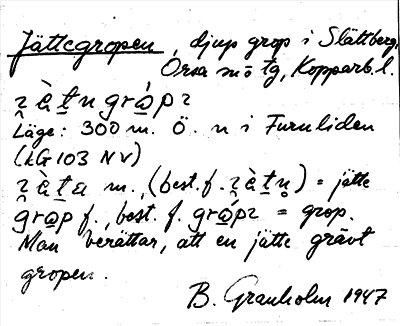 Jättegropen, djup grop i Slättberg,
Orsa sn o tg, Kopparb. l.
Läge: 300 m. Ö. n i Furuliden
(LG 103 NV)
m., (best. f. = jätte
f., best. f. = grop.
Man berättar, att en jätte grävt
gropen.
B. Granholm 1947